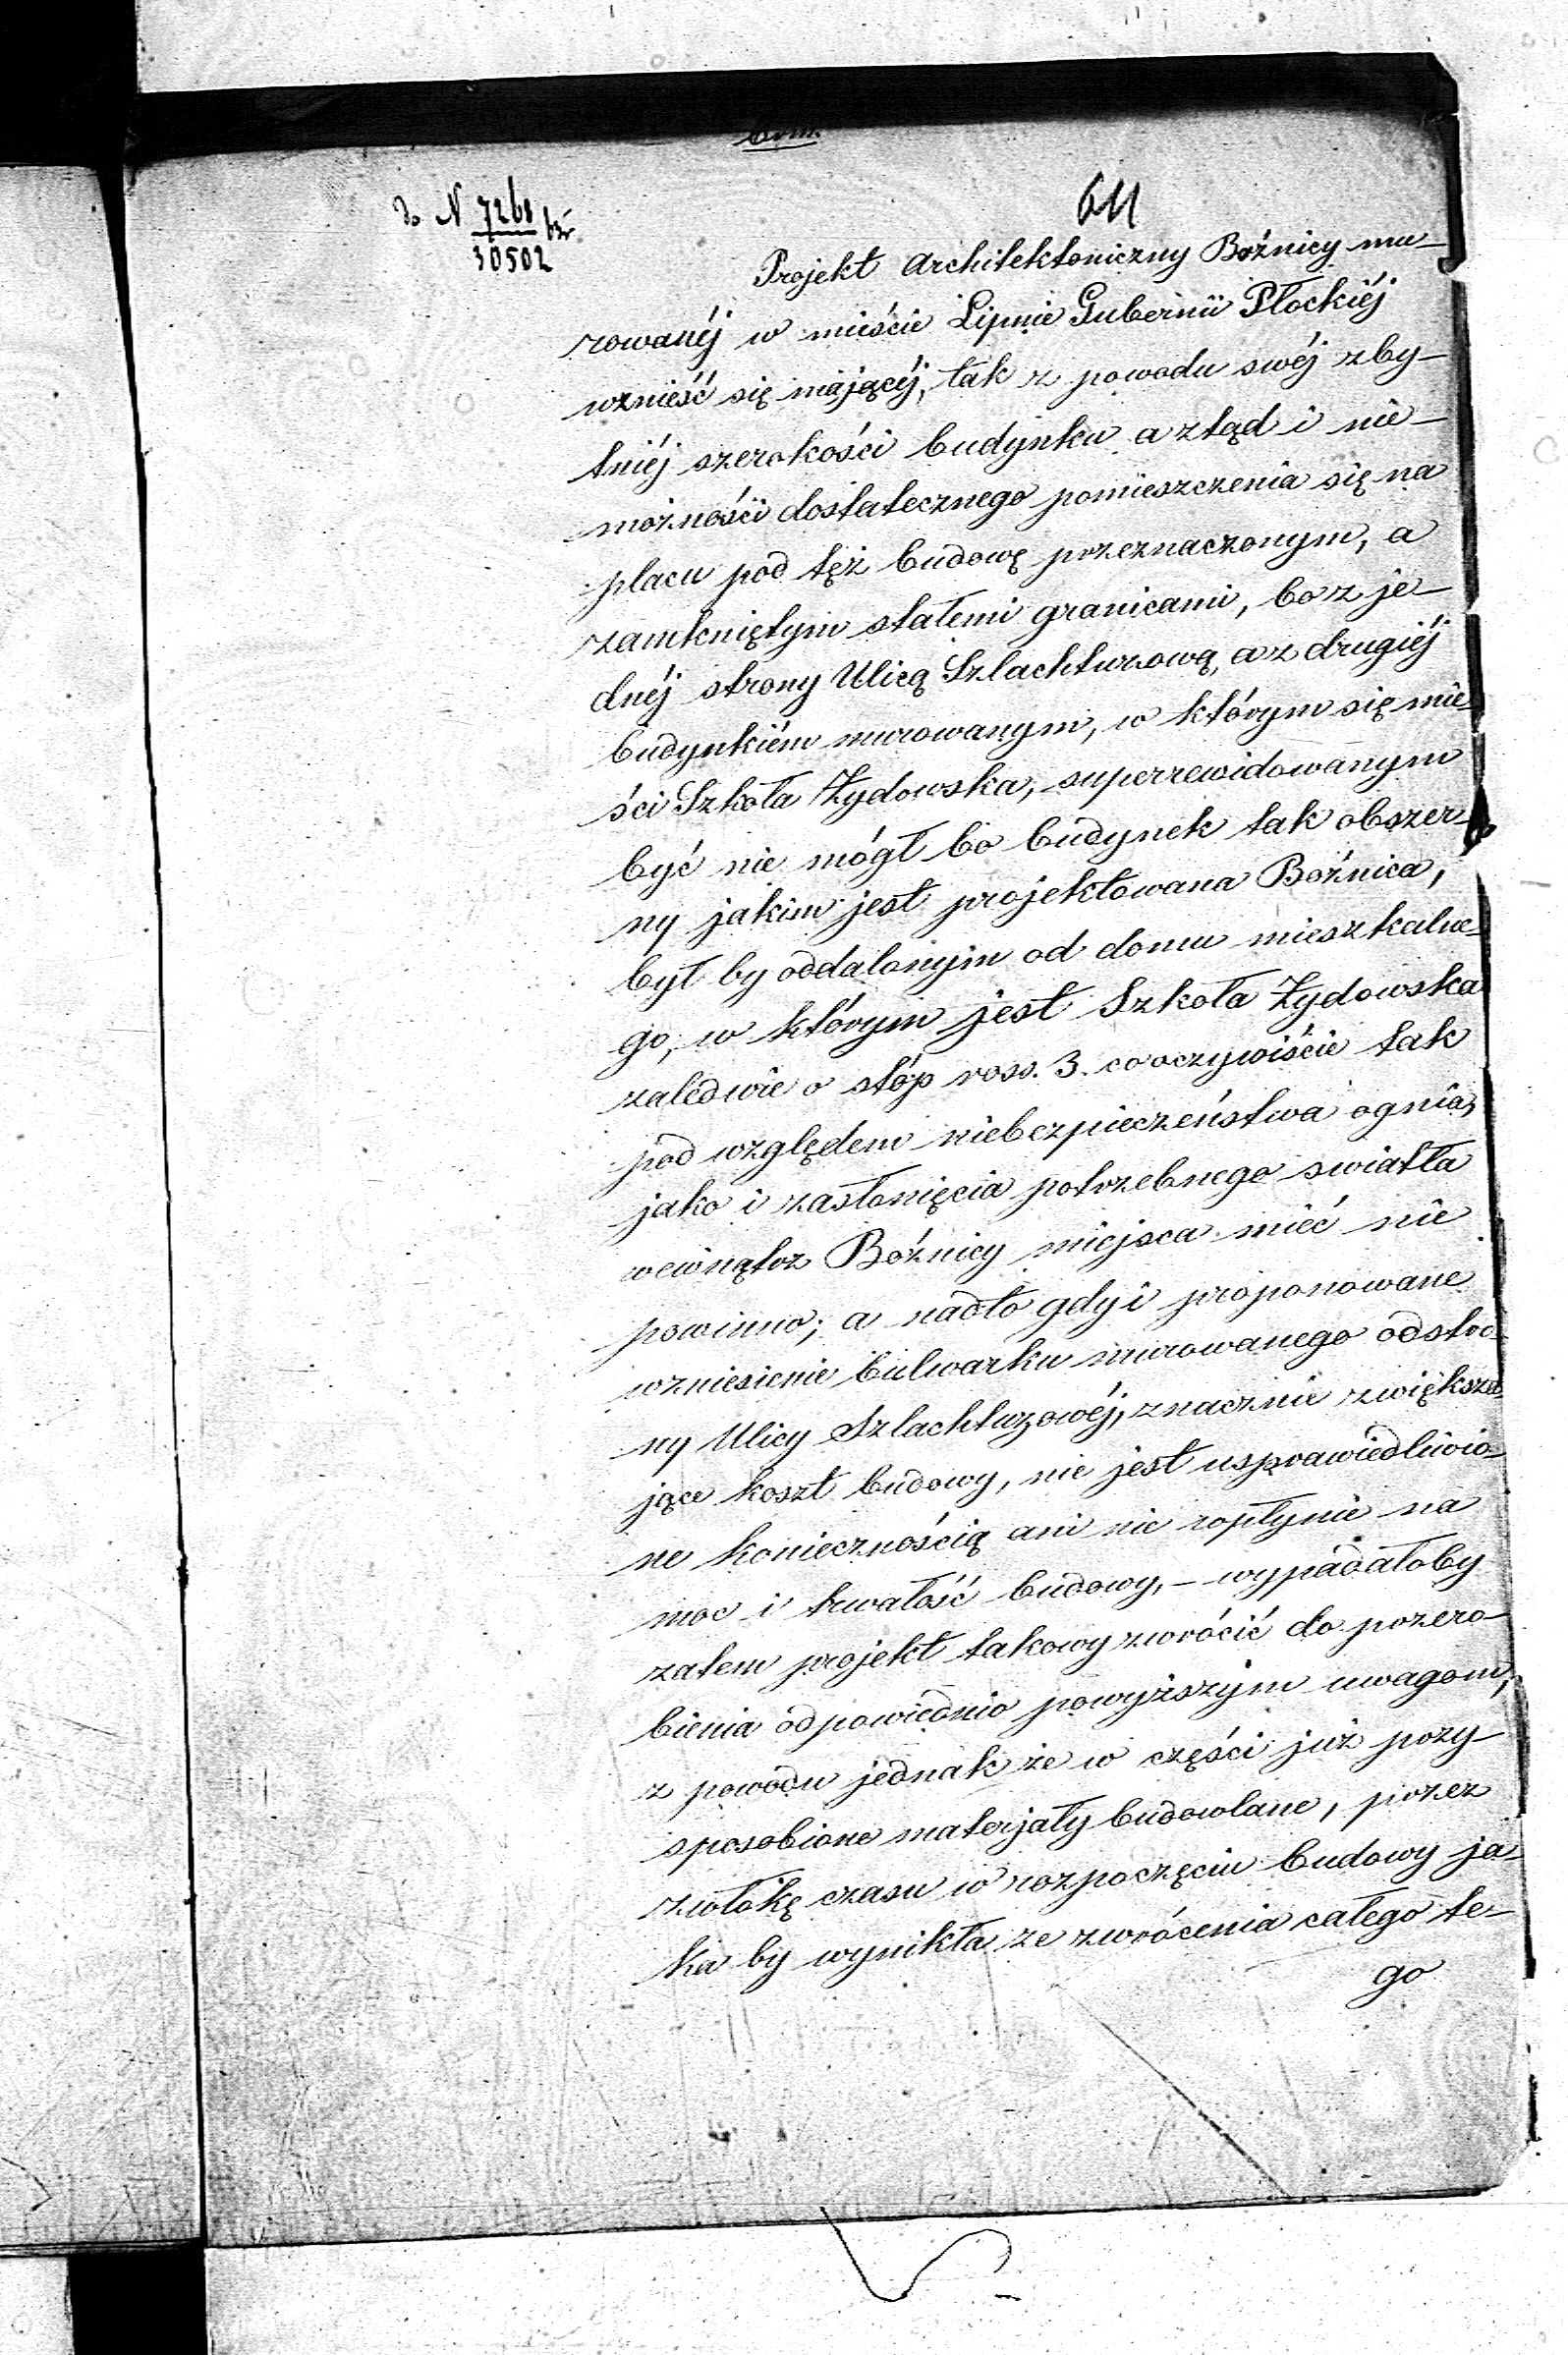 do N 7268
30502
611
Projekt Architektoniczny Bóźnicy mu-
rowanéj w mieście Lipnie Gubernii Płockiéj
wznieść się mającéj, tak z powodu swéj zby-
tniéj szerokości budynku a ztąd i nie-
możności dostatecznego pomieszczenia się na
placu pod tęż budowę przeznaczonym, a
zamkniętym stałemi granicami, bo z je-
dnéj strony Ulicą Szlachtuzową, a z drugiéj
budynkiém murowanym, w którym się mie-
ści Szkoła Żydowska, superrewidowanym
być nie mógł bo budynek tak obszer-
ny jakim jest projektowana Bóźnica,
był by oddalonym od domu mieszkalne-
go, w którym jest Szkoła Żydowska
zaledwie o stóp ross. 3. co oczywiście tak
pod względem niebezpieczeństwa ognia,
jako i zasłonięcia potrzebnego swiatła
wewnątrz Bóźnicy miejsca mieć nie
powinno; a nadto gdy i proponowane
wzniesienie bulwarku murowanego od stro-
ny Ulicy Szlachtuzowéj, znacznie zwiększa-
jące koszt budowy, nie jest usprawiedliwio-
ne koniecznością ani nie wpłynie na
moc i trwałość budowy, - wypadałoby
zatem projekt takowy zwrócić do przero-
bienia odpowiednio powyższym uwagom,
z powodu jednak że w części już przy-
sposobione materjały budowlane, przez
zwłokę czasu w rozpoczęciu budowy ja-
ka by wynikła ze zwrócenia całego te-
go